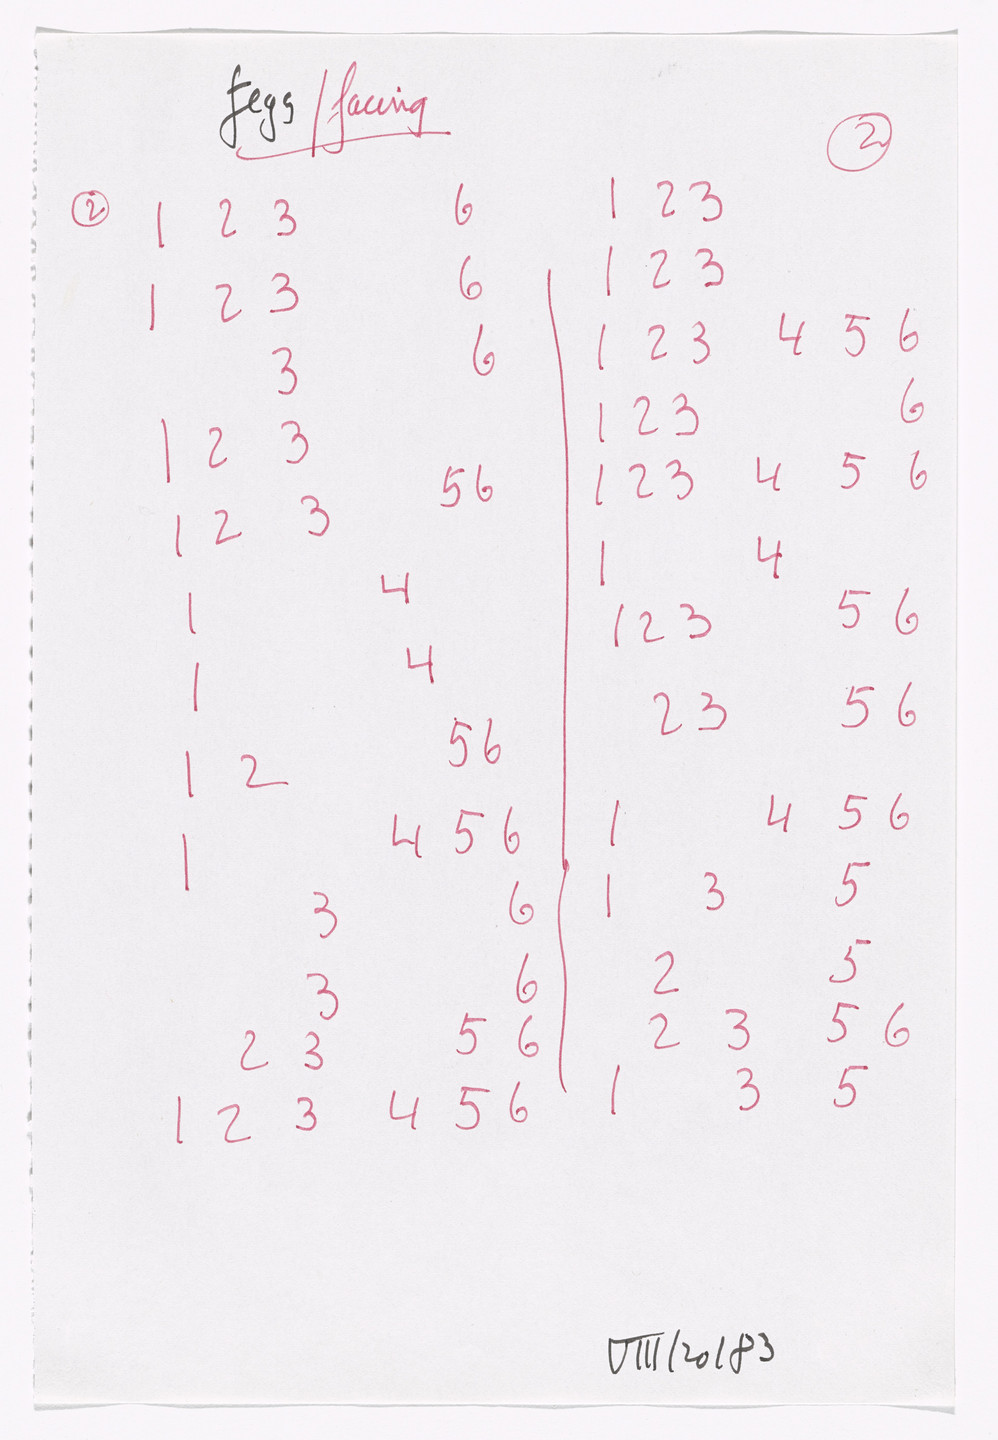 Legs / facing
2
2 1 2 3 6
1 2 3 6
3 6
1 2 3
1 2 3 5 6
1 4
1 4
1 2 5 6
1 4 5 6
3 6
3 6
2 3 5 6
1 2 3 4 5 6
1 2 3
1 2 3
1 2 3 4 5 6
1 2 3 6
1 2 3 4 5 6
1 4
1 2 3 5 6
2 3 5 6
1 4 5 6
1 3 5
2 5
2 3 5 6
1 3 5
VIII/20/83